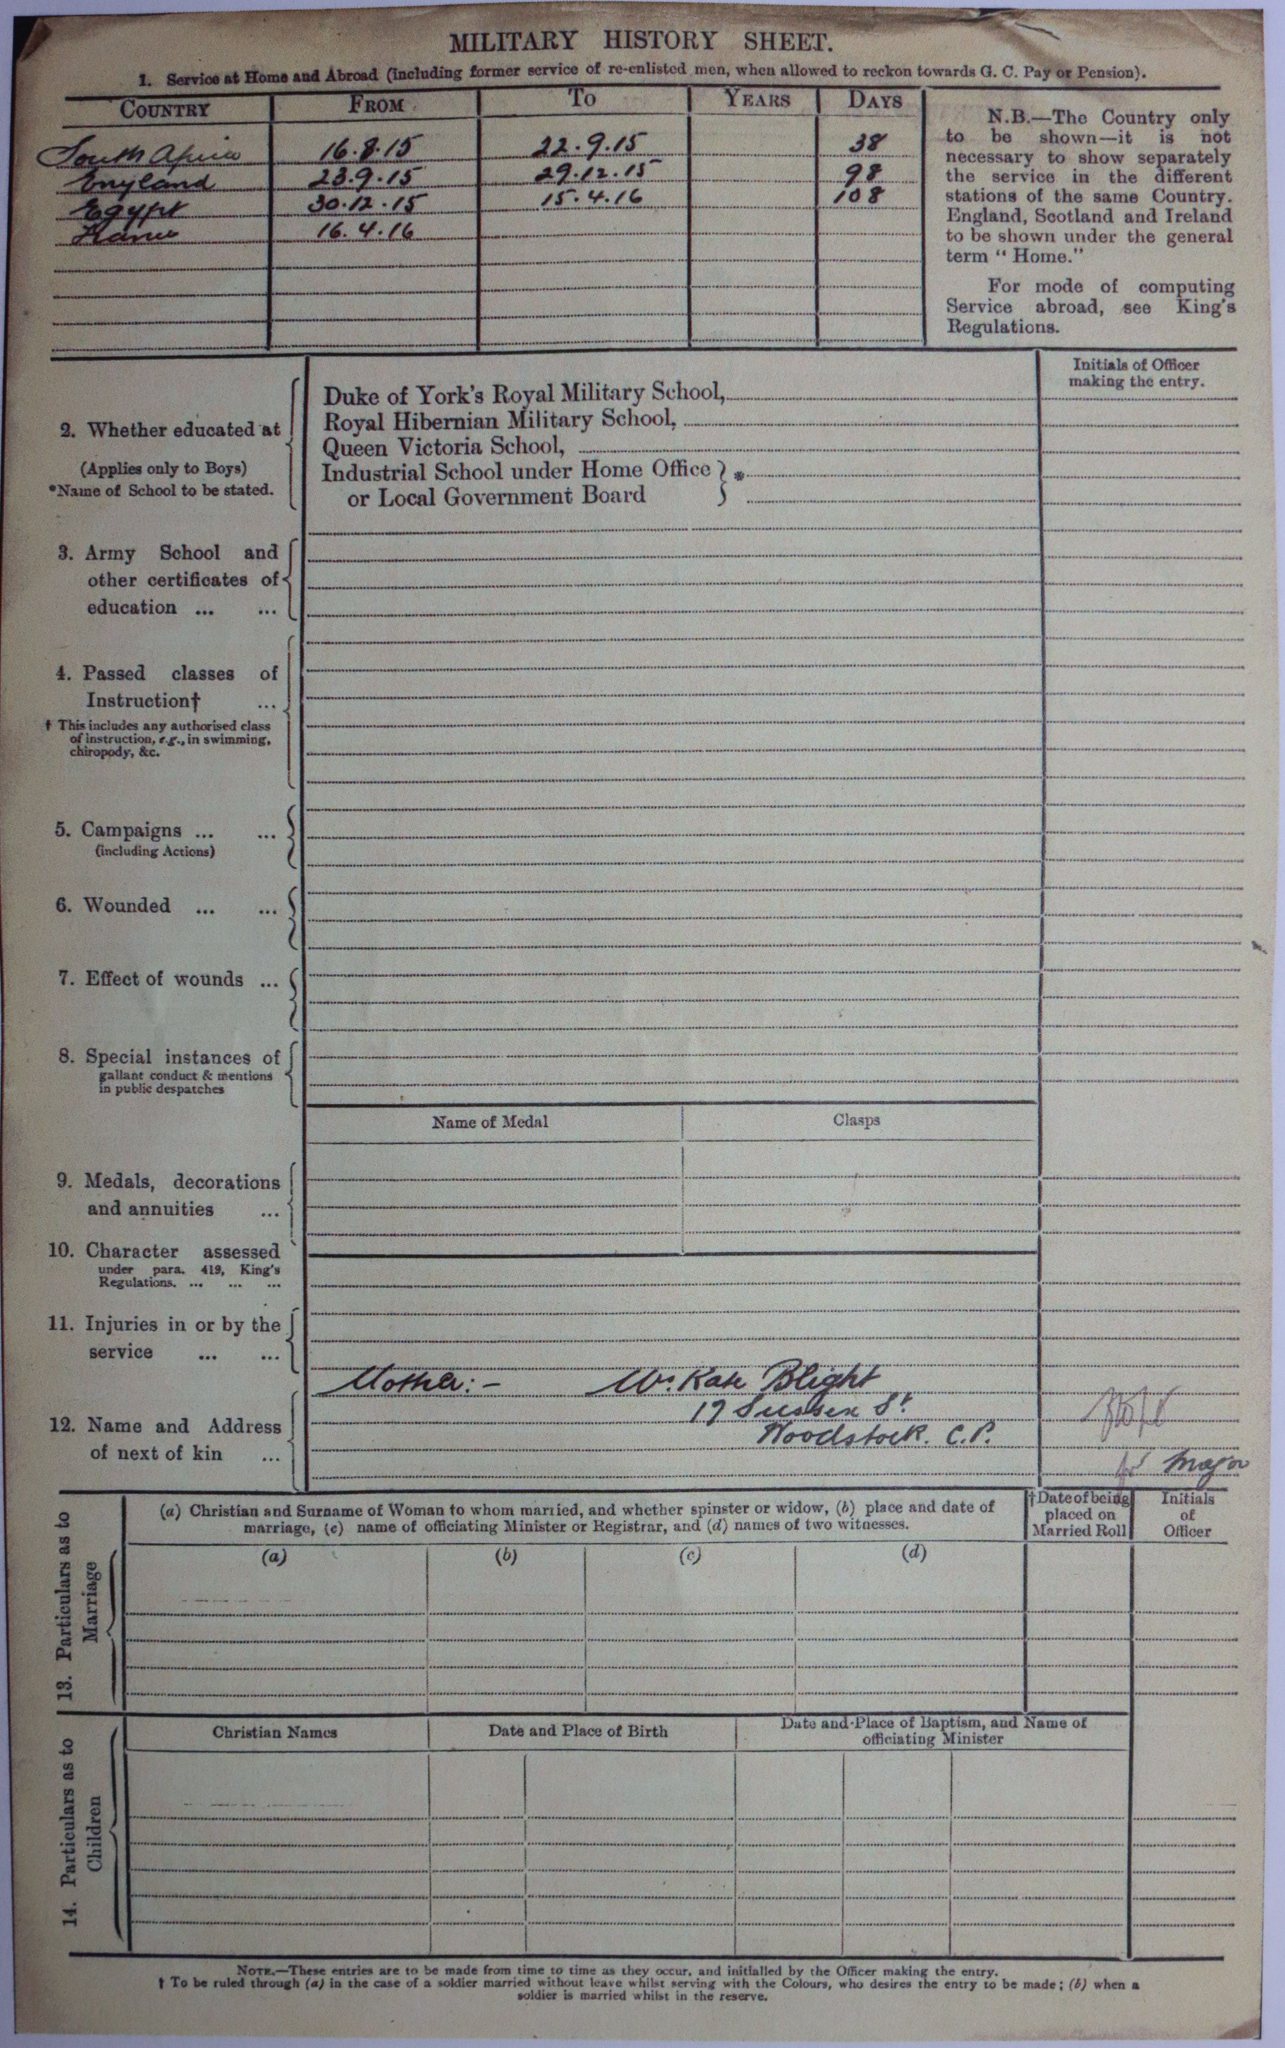 MILITARY HISTORY SHEET.
1. Service at Home and Abroad (including former service of re-enlisted men, when allowed to reckon towards G. C. Pay or Pension).
COUNTRY FROM TO YEARS DAYS
South Africa 16.8.15 22.9.15 38
England 23.9.15 29.12.15 98
Egypt 30.12.15 15.4.16 108
France 16.4.16
N.B.—The Country only
to be shown—it is not
necessary to show separately
the service in the different
stations of the same Country.
England, Scotland and Ireland
to be shown under the general
term "Home."
For mode of computing
Service abroad, see King's
Regulations.
Initials of Officer
making the entry.
2. Whether educated at
(Applies only to Boys)
*Name of School to be stated.
Duke of York's Royal Military School,
Royal Hibernian Military School,
Queen Victoria School,
Industrial School under Home Office } *
or Local Government Board
3. Army School and
other certificates of
education ... ...
4. Passed classes of
Instruction† ...
† This includes any authorised class
of instruction, e.g., in swimming,
chiropody, &c.
5. Campaigns ... ...
(including Actions)
6. Wounded ... ...
7. Effect of wounds ...
8. Special instances of
gallant conduct & mentions
in public despatches
Name of Medal Clasps
9. Medals, decorations
and annuities ...
10. Character assessed
under para. 419, King's
Regulations. ... ... ...
11. Injuries in or by the
service ... ...
12. Name and Address
of next of kin ...
Mother:- Mrs Kate Blight
17 Sussex St
Woodstock. C.P.
for Major
13. Particulars as to
Marriage
(a) Christian and Surname of Woman to whom married, and whether spinster or widow, (b) place and date of
marriage, (c) name of officiating Minister or Registrar, and (d) names of two witnesses.
†Date of being
placed on
Married Roll
Initials
of
Officer
(a) (b) (c) (d)
14. Particulars as to
Children
Christian Names Date and Place of Birth
Date and Place of Baptism, and Name of
officiating Minister
NOTE.—These entries are to be made from time to time as they occur, and initialled by the Officer making the entry.
† To be ruled through (a) in the case of a soldier married without leave whilst serving with the Colours, who desires the entry to be made; (b) when a
soldier is married whilst in the reserve.